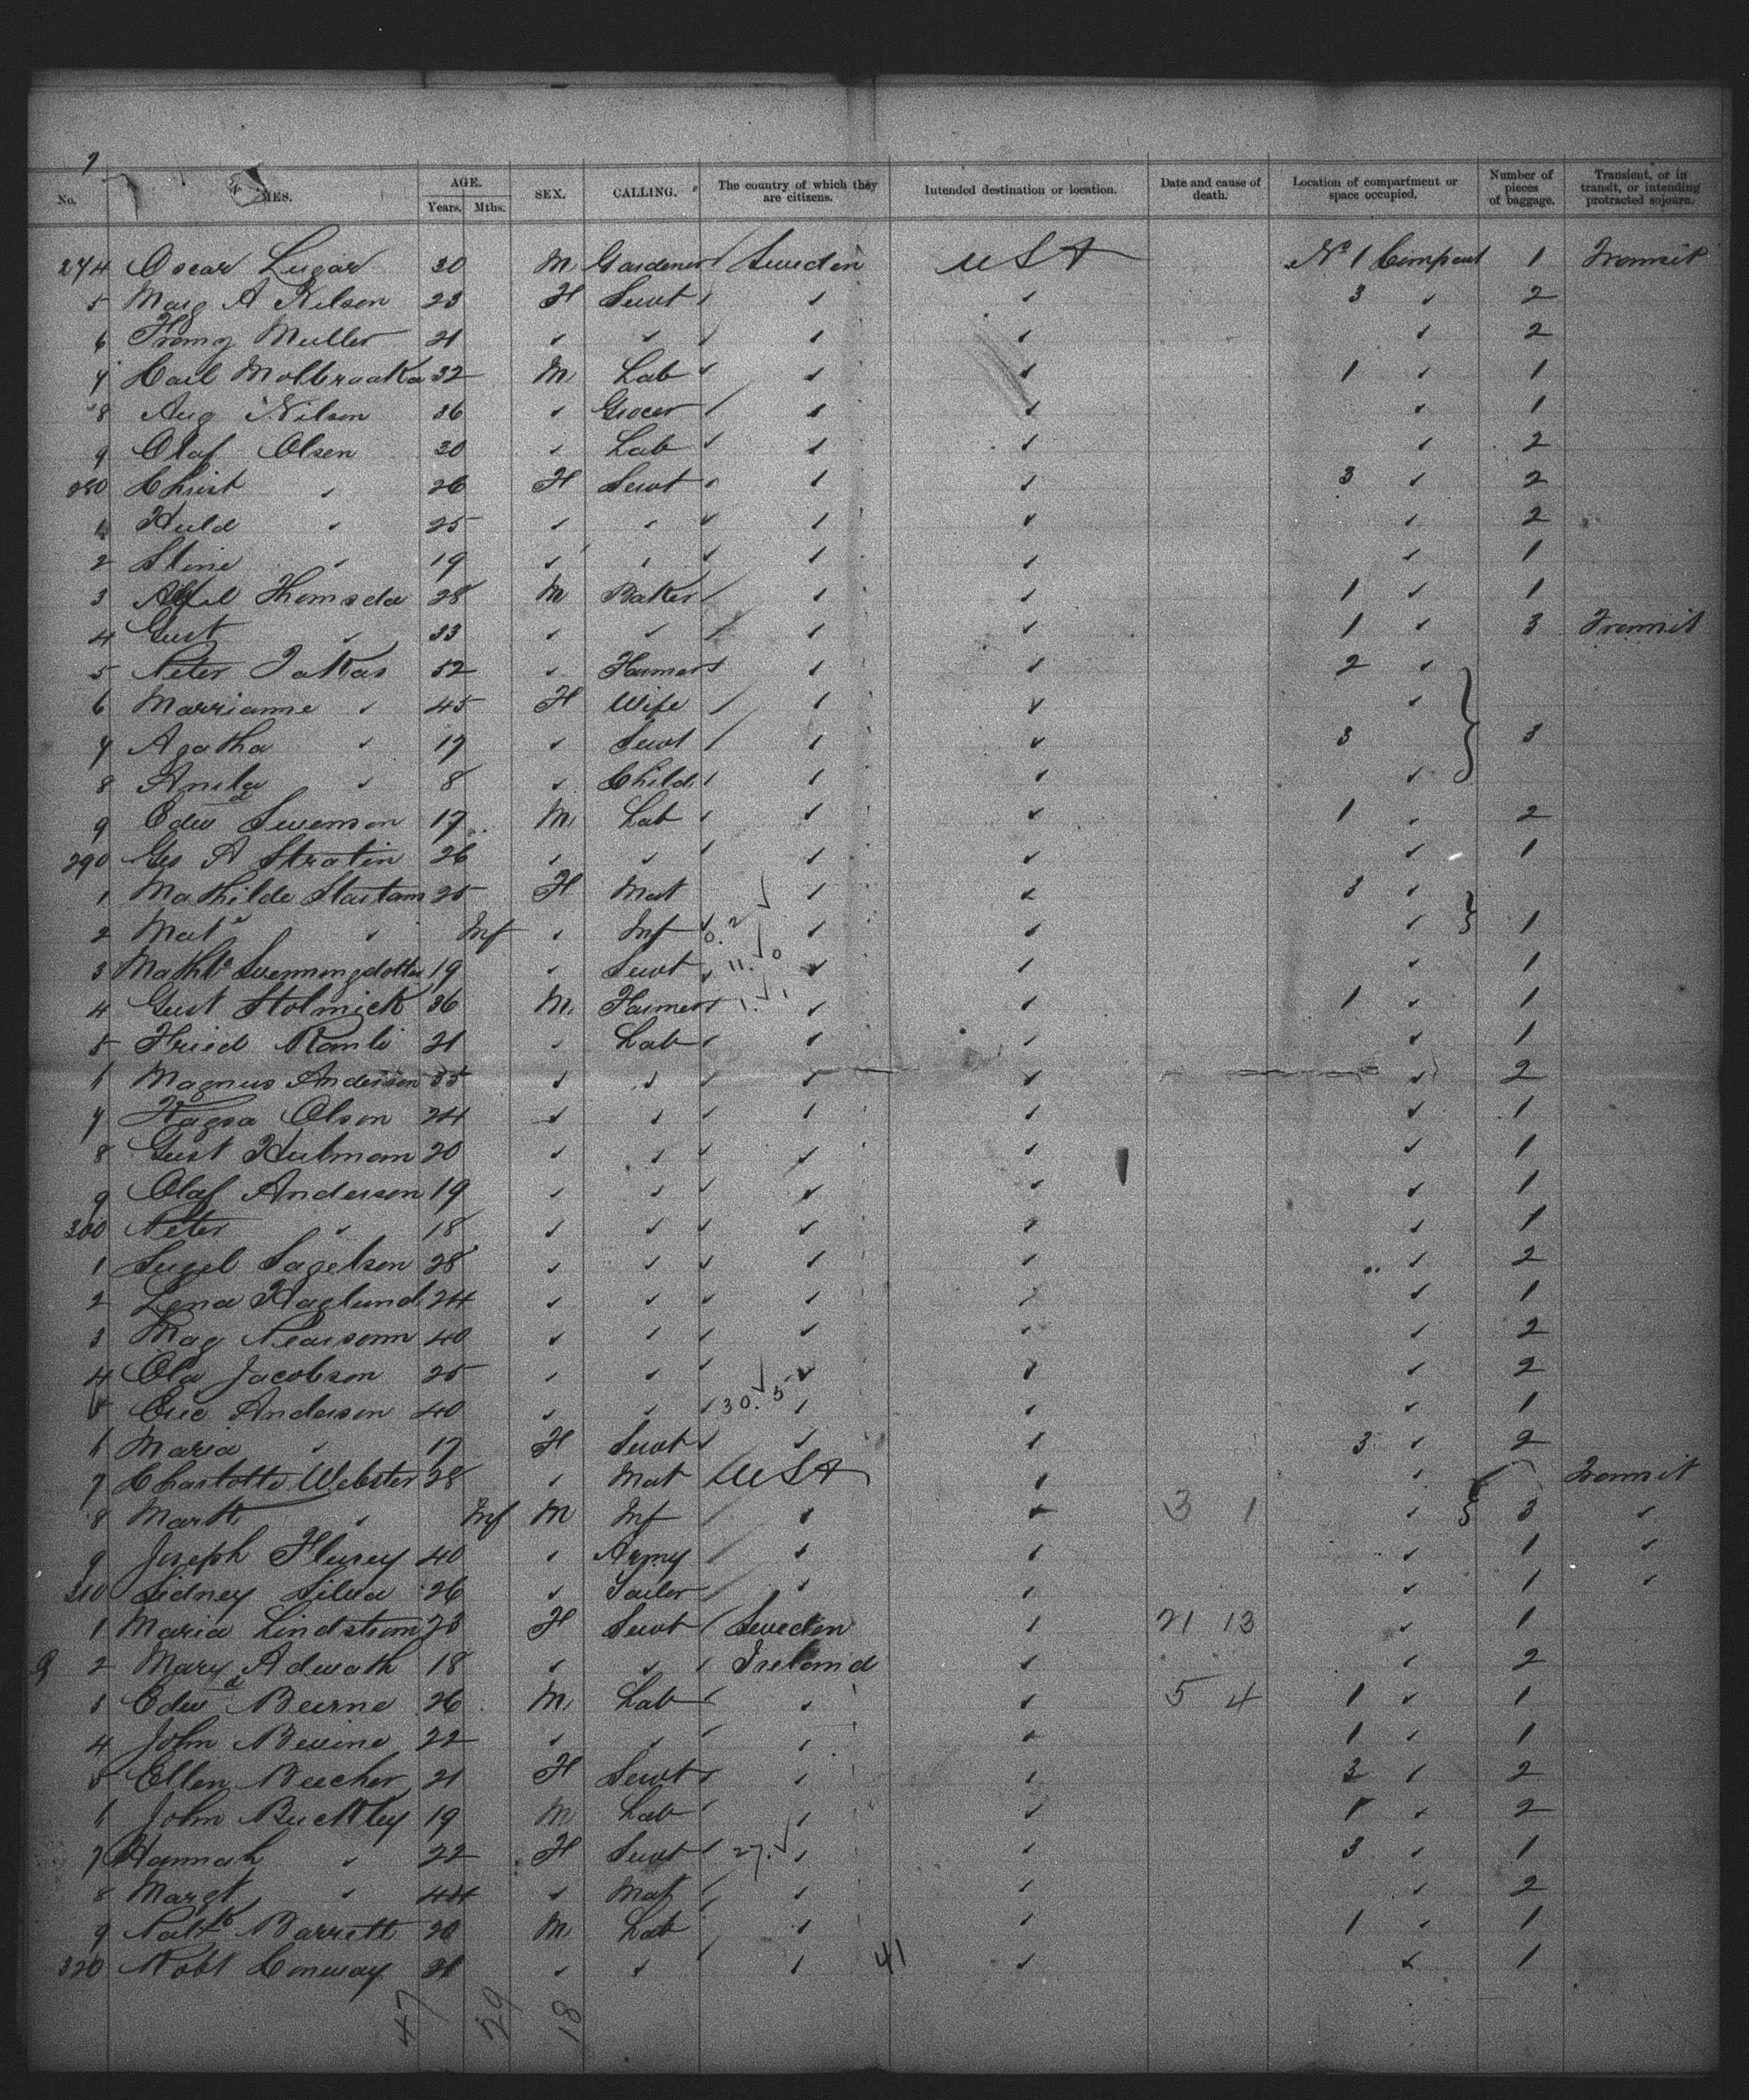 7
No. NAMES. AGE. Years. Mths. SEX. CALLING. The country of which they are citizens. Intended destination or location. Date and cause of death. Location of compartment or space occupied. Number of pieces of baggage. Transient, or in transit, or intending protracted sojourn.
274 Oscar 30 M Gardener / Sweden USA No 1 Compent 1 Transit
5 Marg A Nilson 23 F Servt ✓ ✓ ✓ 3 ✓ 2
6 Muller 21 ✓ ✓ ✓ ✓ ✓ ✓ 2
7 32 M Lab ✓ ✓ ✓ 1 ✓ 1
8 Aug Nilson 36 ✓ Grocer / ✓ ✓ ✓ 1
9 Olaf Olsen 30 ✓ Lab ✓ ✓ ✓ ✓ 2
280 Christ ✓ 26 F Servt ✓ ✓ ✓ 3 ✓ 2
1 Huld ✓ 25 ✓ ✓ ✓ ✓ ✓ ✓ 2
2 Stine ✓ 19 ✓ ✓ ✓ ✓ ✓ ✓ 1
3 Thomsda 28 M Baker / ✓ ✓ 1 ✓ 1
4 Gust ✓ 33 ✓ ✓ / ✓ ✓ 1 ✓ 3 Transit
5 Peter 52 ✓ Farmer ✓ ✓ ✓ 2 ✓
6 Marrianne ✓ 45 F Wife / ✓ ✓ ✓
7 Agatha ✓ 17 ✓ Servt / ✓ ✓ 3 } 3
8 ✓ 8 ✓ Child / ✓ ✓ ✓
9 Edwd Swenson 17 M Lab ✓ ✓ ✓ 1 ✓ 2
290 Geo A Stratin 26 ✓ ✓ ✓ ✓ ✓ ✓ 1
1 Mathilde 25 F Mat ✓ ✓ ✓ 3 ✓
2 Mate ✓ Inf ✓ Inf ✓ 0.2 ✓ ✓ ✓ } 1
3 19 ✓ Servt ✓ 11.0 ✓ ✓ ✓ 1
4 Gust Stolmick 36 M Farmer ✓ 1.1 ✓ ✓ 1 ✓ 1
5 Fried 21 ✓ Lab ✓ ✓ ✓ ✓ 1
6 Magnus Anderson 35 ✓ ✓ ✓ ✓ ✓ ✓ 2
7 Olson 24 ✓ ✓ ✓ ✓ ✓ ✓ 1
8 Gust Hulman 20 ✓ ✓ ✓ ✓ ✓ ✓ 1
9 Olaf Anderson 19 ✓ ✓ ✓ ✓ ✓ ✓ 1
300 Peter ✓ 18 ✓ ✓ ✓ ✓ ✓ ✓ 1
1 28 ✓ ✓ ✓ ✓ ✓ ✓ 2
2 Lena Haglund 24 ✓ ✓ ✓ ✓ ✓ ✓ 1
3 Mag Pearsonn 40 ✓ ✓ ✓ ✓ ✓ ✓ 2
4 Ola Jacobson 25 ✓ ✓ ✓ ✓ ✓ ✓ 2
5 Eric Anderson 40 ✓ ✓ ✓ 30.5 ✓ ✓ ✓ 1
6 Maria ✓ 17 F Servt ✓ ✓ ✓ 3 ✓ 2
7 Charlotte Webster 28 ✓ Mat USA ✓ ✓ Transit
8 ✓ Inf M Inf / ✓ ✓ 3 1 ✓ } 3 ✓
9 Joseph 40 ✓ Army / ✓ ✓ ✓ 1 ✓
310 Sidney Silva 26 ✓ / ✓ ✓ ✓ 1 ✓
1 Maria Lindstrom 23 F Servt / Sweden ✓ 21 13 ✓ 1
2 Mary 18 ✓ ✓ ✓ Ireland ✓ ✓ 2
3 Edwd Beirne 26 M Lab ✓ ✓ ✓ 5 4 1 ✓ 1
4 John 22 ✓ ✓ ✓ ✓ ✓ 1 ✓ 1
5 Ellen Beecher 21 F Servt ✓ ✓ ✓ 3 ✓ 2
6 John Buckley 19 M Lab ✓ ✓ ✓ 1 ✓ 2
7 Hannah ✓ 22 F Servt ✓ 27. ✓ ✓ 3 ✓ 1
8 Margt ✓ 44 ✓ Mat ✓ ✓ ✓ ✓ 2
9 Patk Barrett 20 M Lab ✓ ✓ ✓ 1 ✓ 1
320 Robt Conway 21 ✓ ✓ ✓ ✓ 41 ✓ ✓ 1
47 29 18